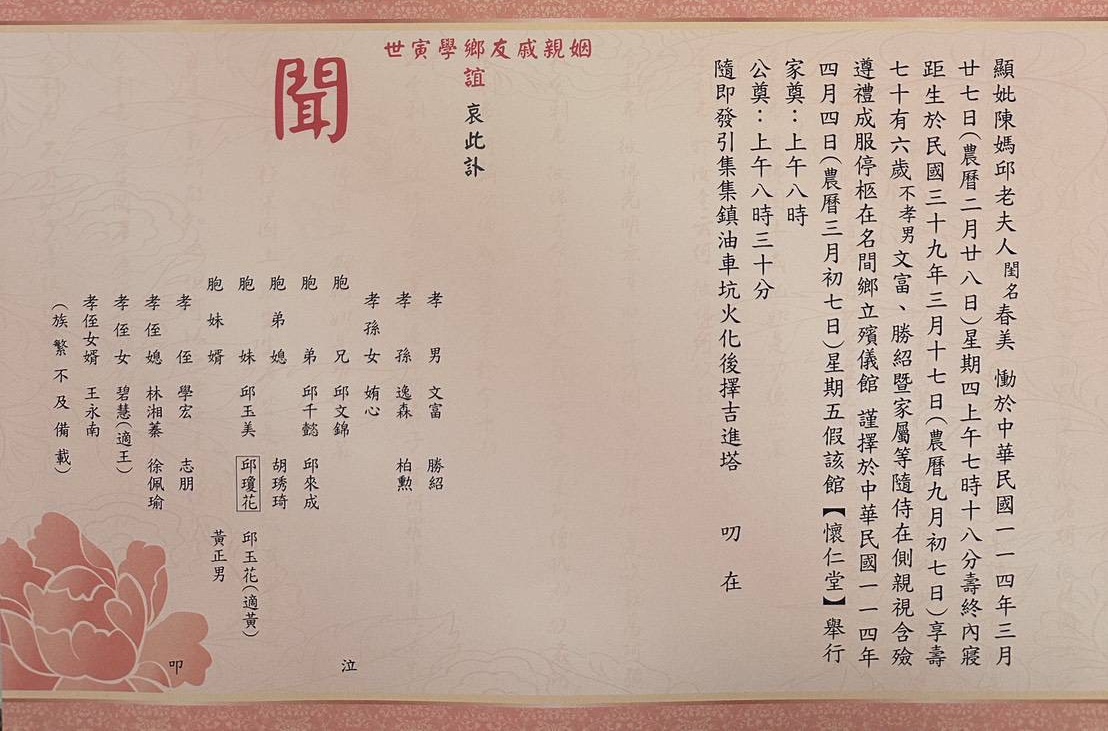 顯妣陳媽邱老夫人閨名春美 慟於中華民國一一四年三月
廿七日(農曆二月廿八日)星期四上午七時十八分壽終內寢
距生於民國三十九年三月十七日(農曆九月初七日)享壽
七十有六歲不孝男文富、勝紹暨家屬等隨侍在側親視含殮
遵禮成服停柩在名間鄉立殯儀館 謹擇於中華民國一一四年
四月四日(農曆三月初七日)星期五假該館【懷仁堂】舉行
家奠：上午八時
公奠：上午八時三十分
隨即發引集集鎮油車坑火化後擇吉進塔 叨 在
姻親戚友鄉學寅世
誼 哀此訃
聞
孝男 文富 勝紹
孝孫 逸森 柏勳
孝孫女 姷心
胞兄 邱文錦 泣
胞弟 邱千懿 邱來成
胞弟媳 胡琇琦
胞妹 邱玉美 邱瓊花 邱玉花(適黃)
胞妹婿 黃正男
孝侄 學宏 志朋 叩
孝侄媳 林湘蓁 徐佩瑜
孝侄女 碧慧(適王)
孝侄女婿 王永南
(族繁不及備載)